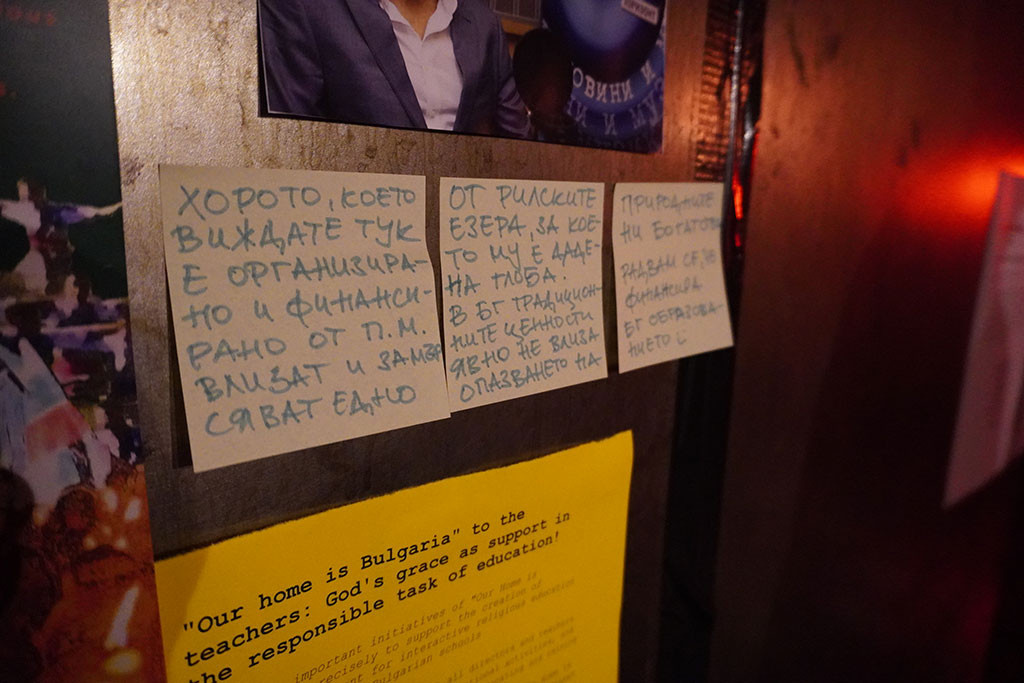 ОВИНИ И
ХОРОТО, КОЕТО
ВИЖДАТЕ ТУК
Е ОРГАНИЗИРА-
НО И ФИНАНСИ-
РАНО ОТ П.М.
ВЛИЗАТ И ЗАМЪР
СЯВАТ ЕДНО
ОТ РИЛСКИТЕ
ЕЗЕРА, ЗА КОЕ-
ТО МУ Е ДАДЕ-
НА ГЛОБА.
В БГ ТРАДИЦИОН-
НИТЕ ЦЕННОСТИ
ЯВНО НЕ ВЛИЗА
ОПАЗВАНЕТО НА
ПРИРОДНИТЕ
НИ БОГАТСТВА
РАДВАМ СЕ, ЧЕ
ФИНАНСИРА
БГ ОБРАЗОВА-
НИЕТО :
"Our home is Bulgaria" to the
teachers: God's grace as support in
the responsible task of education!
important initiatives of "Our Home is
precisely to support the creation of
for interactive religious education
Bulgarian schools
all directors and teachers